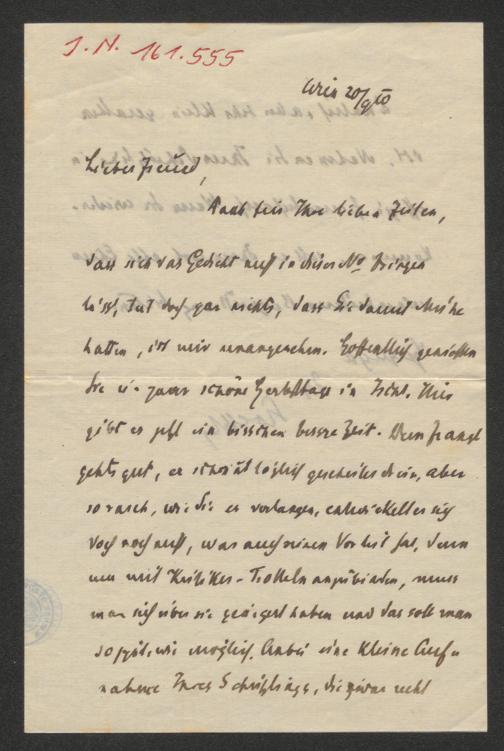 I. N. 161.555
Wien 20/9 10
Lieber Freund,
Dank für Ihre lieben Zeilen,
dass sich das Gedicht nicht in dieser Nr bringen
lässt, tut doch gar nichts, dass Sie damit Mühe
hatten, ist mir unangenehm. Hoffentlich geniessen
Sie ein paar schöne Herbsttage in Ischl. Hier
gibt es jetzt ein bisschen bessre Zeit. Dem
gehts gut, er schaut täglich gescheiter drein, aber
so rasch, wie Sie es verlangen, entwickelt er sich
doch noch nicht, was auch seinen Vorteil hat, denn
um mit Kritiker-Trotteln anzubinden, muss
man sich über sie geärgert haben und das soll man
so spät, wie möglich. Anbei eine kleine Auf-
nahme Ihres Schützlings, die zwar recht